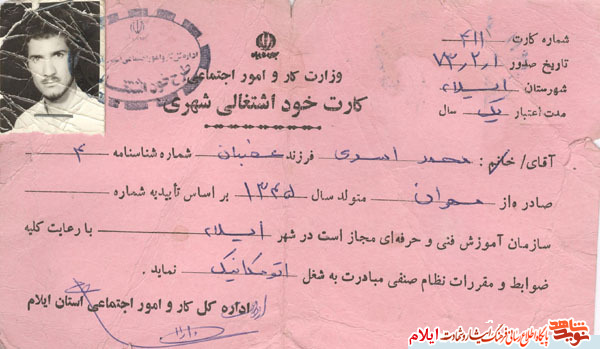 جمهوری اسلامی ایران
وزارت کار و امور اجتماعی
کارت خود اشتغالی شهری
شماره کارت ۴۱۱
تاریخ صدور ۷۳/۲/۱
شهرستان ایلام
مدت اعتبار یک سال
آقای/خانم: محمد اسدی فرزند غضبان شماره شناسنامه ۴
صادره از مهران متولد سال ۱۳۴۵ بر اساس تأییدیه شماره
سازمان آموزش فنی و حرفه‌ای مجاز است در شهر ایلام با رعایت کلیه
ضوابط و مقررات نظام صنفی مبادرت به شغل اتومکانیک نماید.
اداره کل کار و امور اجتماعی استان ایلام
نوید شاهد
پایگاه اطلاع رسانی فرهنگ ایثار و شهادت ایلام